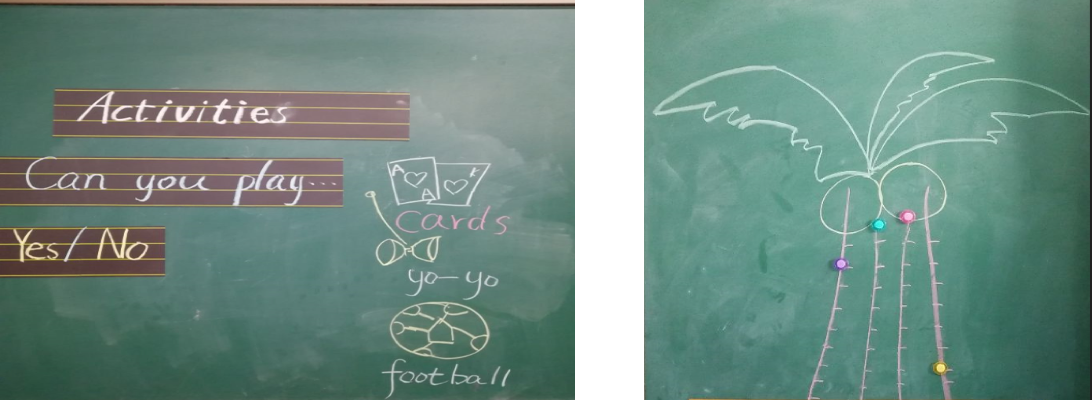 Activities
Can you play...
Yes/No
A
A
K
cards
yo-yo
football